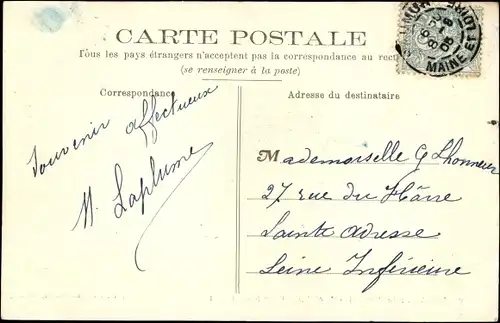 CARTE POSTALE
Tous les pays étrangers n'acceptent pas la correspondance au recto
(se renseigner à la poste)
Correspondance
Adresse du destinataire
MAINE ET LOIRE
Souvenir affectueux
M. Laplume
Mademoiselle G Lhonneur
27 rue du Hâvre
Sainte Adresse
Seine Inférieure